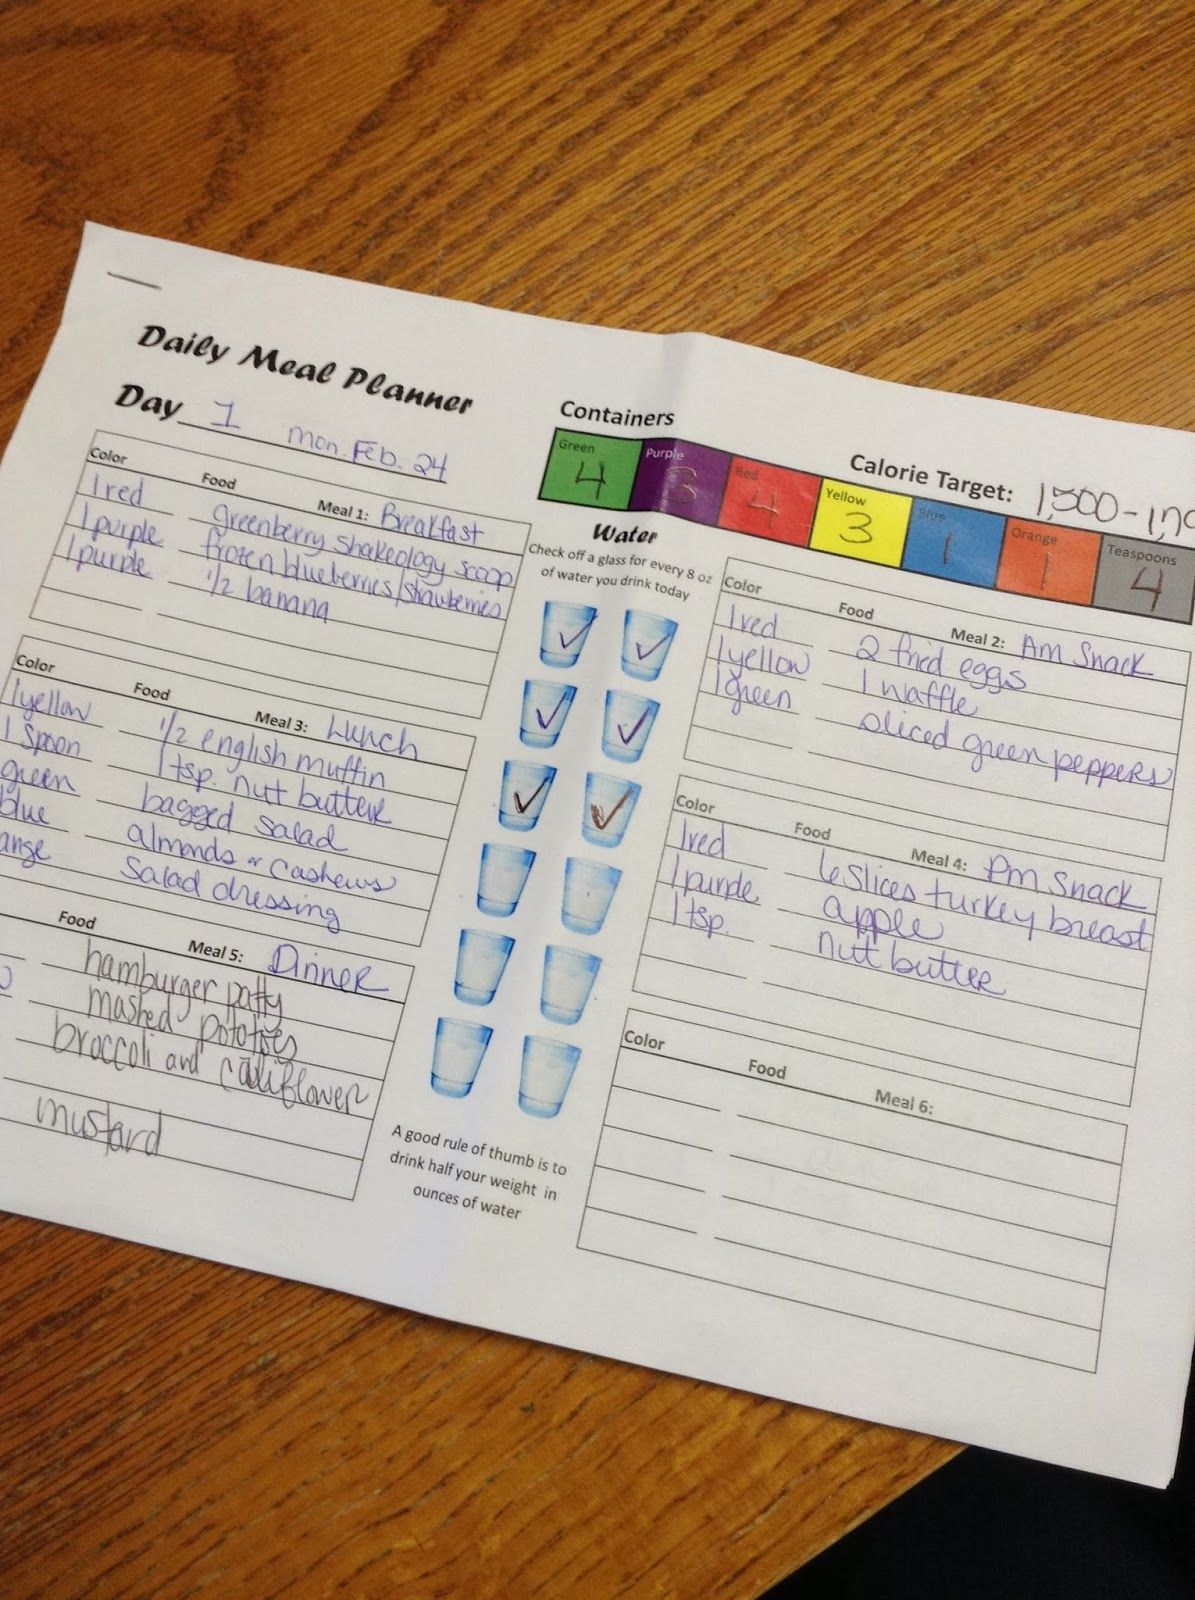 Daily Meal Planner
Day 1 mon. Feb. 24
Containers
Green 4
Purple 3
Red 4
Yellow 3
Blue 1
Orange 1
Teaspoons 4
Calorie Target: 1,500-1,79
Color Food Meal 1: Breakfast
1 red greenberry shakeology scoop
1 purple frozen blueberries/strawberries
1 purple 1/2 banana
Water
Check off a glass for every 8 oz
of water you drink today
Color Food Meal 2: Am Snack
1 red 2 fried eggs
1 yellow 1 waffle
1 green sliced green peppers
Color Food Meal 3: Lunch
1 yellow 1/2 english muffin
1 spoon 1 tsp. nut butter
green bagged salad
blue almonds & cashews
ange salad dressing
Color Food Meal 4: Pm Snack
1 red 6 slices turkey breast
1 purple apple
1 tsp. nut butter
Food Meal 5: Dinner
hamburger patty
mashed potatoes
broccoli and cauliflower
mustard
A good rule of thumb is to
drink half your weight in
ounces of water
Color Food Meal 6: